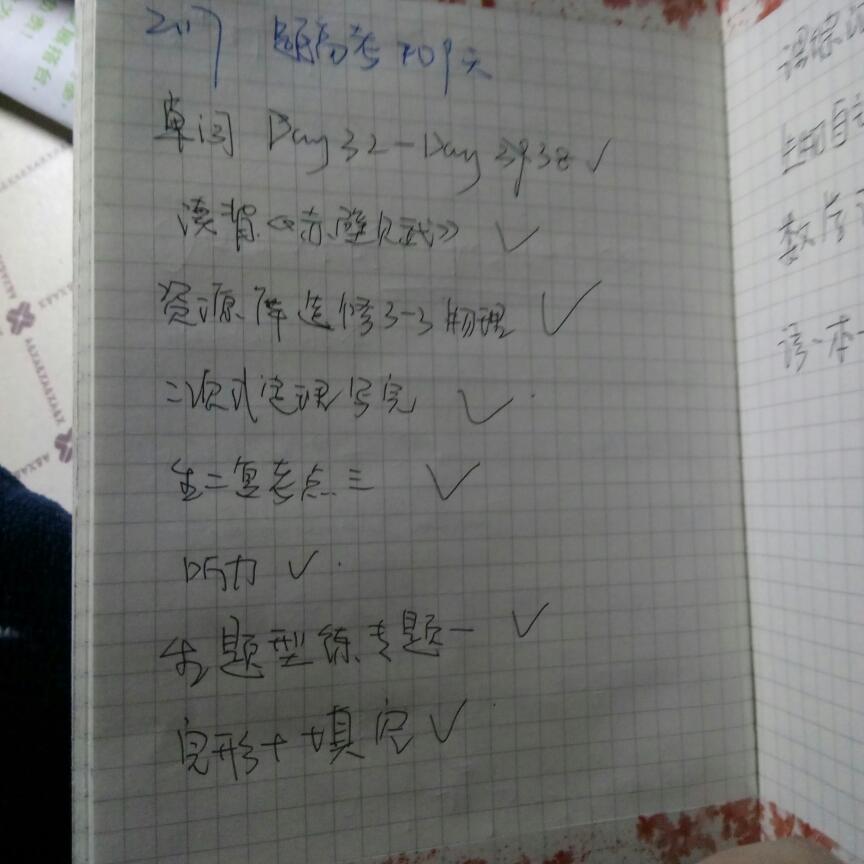 2.17 距高考109天
单词 Day 32-Day 38 ✓
读背《赤壁赋》 ✓
资源库选修3-3物理 ✓
二项式定理写完 ✓
生二复考点三 ✓
听力 ✓
生题型练专题一 ✓
完形+填空 ✓
课练
生物自主
数学
语一本